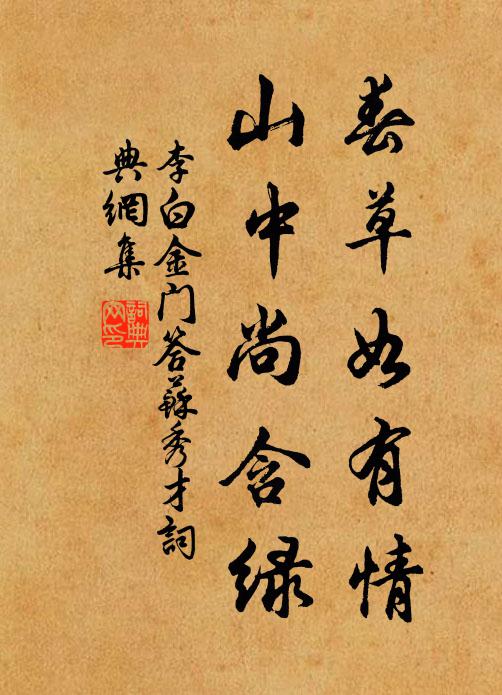 春草如有情
山中尚含绿
李白金门答蘇秀才詞
典網集
詞典
网印